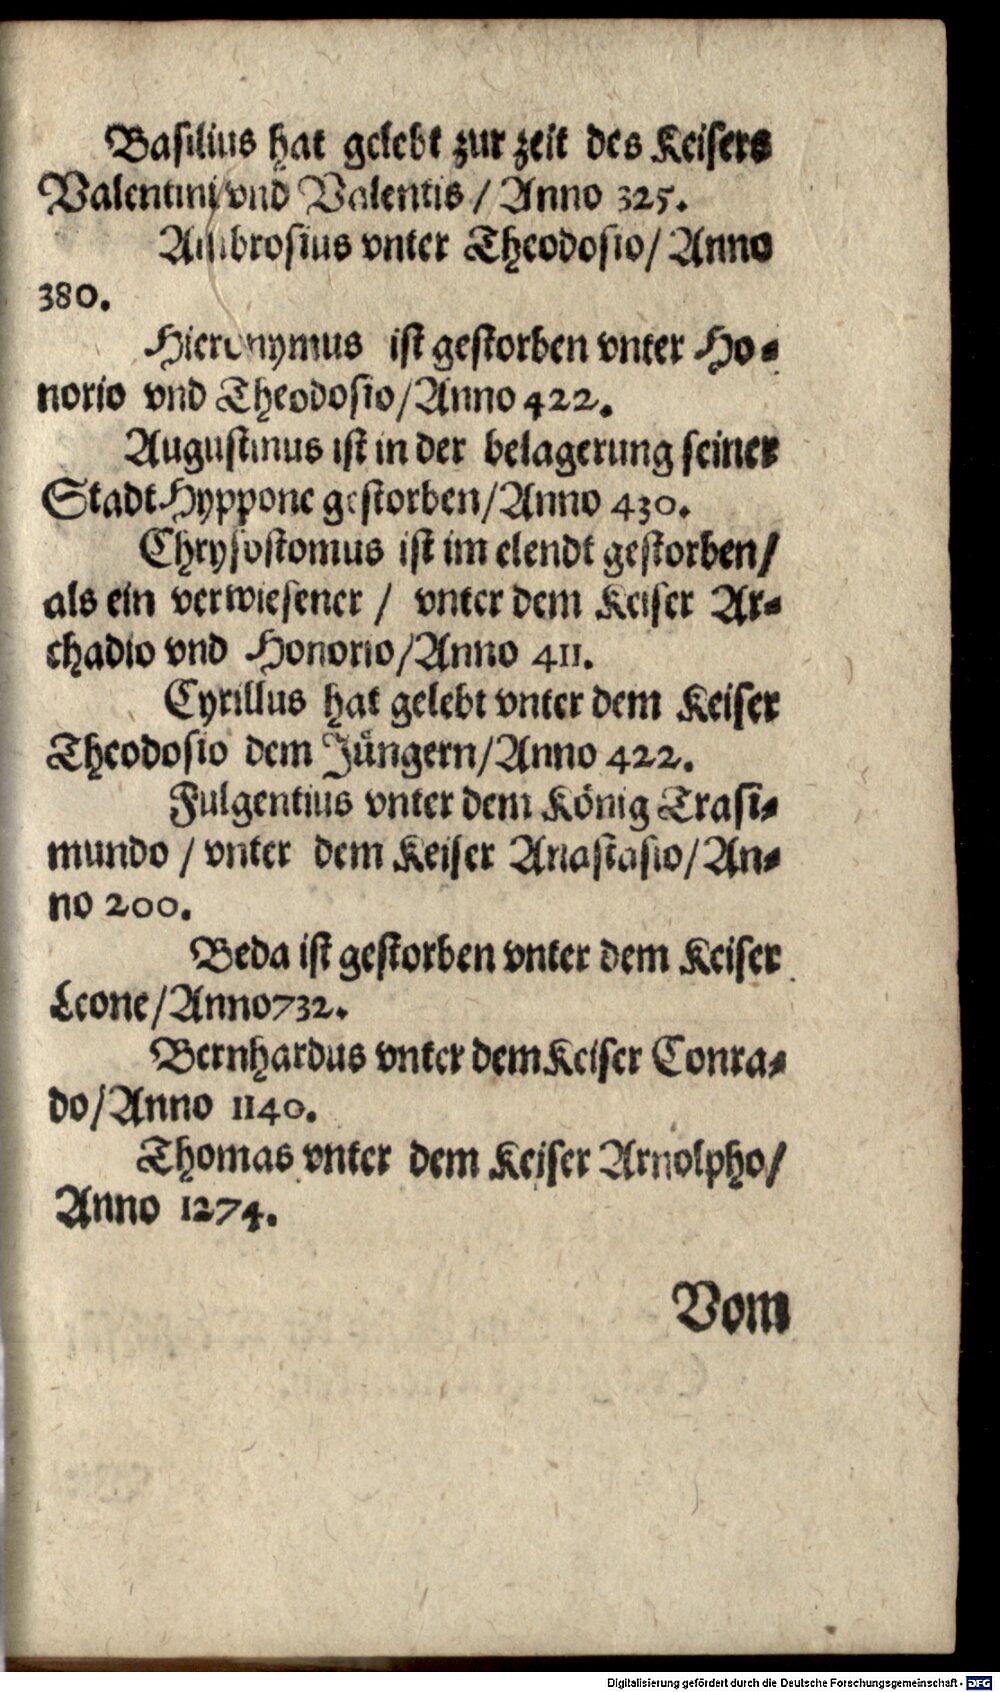 Basilius hat gelebt zur zeit des Keisers
Valentini vnd Valentis / Anno 325.
Ambrosius vnter Theodosio / Anno
380.
Hieronymus ist gestorben vnter Ho-
norio vnd Theodosio / Anno 422.
Augustinus ist in der belagerung seiner
Stadt Hyppone gestorben / Anno 430.
Chrysostomus ist im elendt gestorben /
als ein verwiesener / vnter dem Keiser Ar-
chadio vnd Honorio / Anno 411.
Cyrillus hat gelebt vnter dem Keiser
Theodosio dem Jüngern / Anno 422.
Fulgentius vnter dem König Trasi-
mundo / vnter dem Keiser Anastasio / An-
no 200.
Beda ist gestorben vnter dem Keiser
Leone / Anno 732.
Bernhardus vnter dem Keiser Conra-
do / Anno 1140.
Thomas vnter dem Keiser Arnolpho /
Anno 1274.
Vom
Digitalisierung gefördert durch die Deutsche Forschungsgemeinschaft - DFG